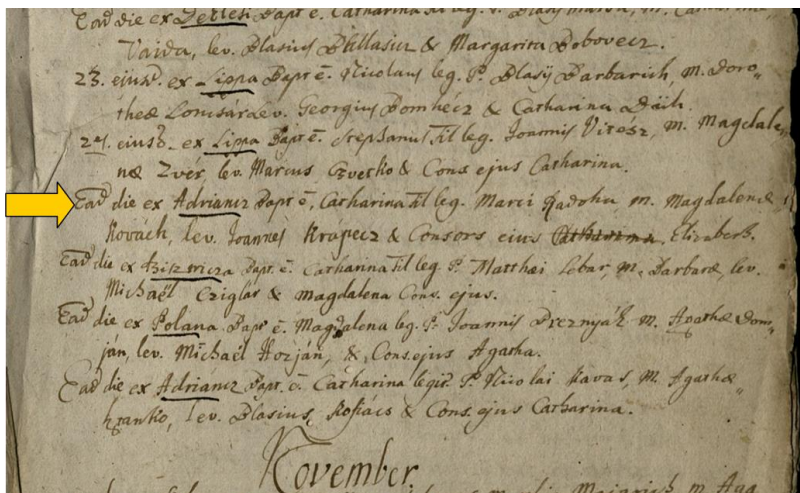 Ead die ex Detlesi Bapt ē. Catharina fil leg. P. Blasÿ
Vaida, lev. Blasius & Margarita Bobovecz.
23. eiusd. ex Lippa Bapt ē. Nicolaus leg. P. Blasÿ Barbarich, m. Doro„
theæ lev. Georgius Domhécz & Catharina
24. eiusd. ex Lippa Bapt ē. Stephanus fil leg. Joannis Vitész, m. Magdale„
næ Zvér, lev. Marcus Czvetko & Cons ejus Catharina.
Ead die ex Adriancz Bapt ē, Catharina fil leg. Marci Radoha m. Magdalenæ
Kovách, lev. Joannes Krápecz & Consors eius Elizabeth.
Ead die ex Biszricza Bapt. ē. Catharina fil leg. P. Matthæi Lebar, m. Barbaræ, lev.
Michaël Cziglár & Magdalena Cons. ejus.
Ead die ex Polana Bapt ē. Magdalena leg. P. Joannis Preznyák m. Agathæ Dom„
ján, lev. Michaël Horján, & Cons. ejus Agatha.
Ead die ex Adriancz Bapt. ē. Catharina legit. P. Nicolai Kavas, m. Agathæ
Hranko, lev. Blasius Kofács & Cons. ejus Catharina.
November